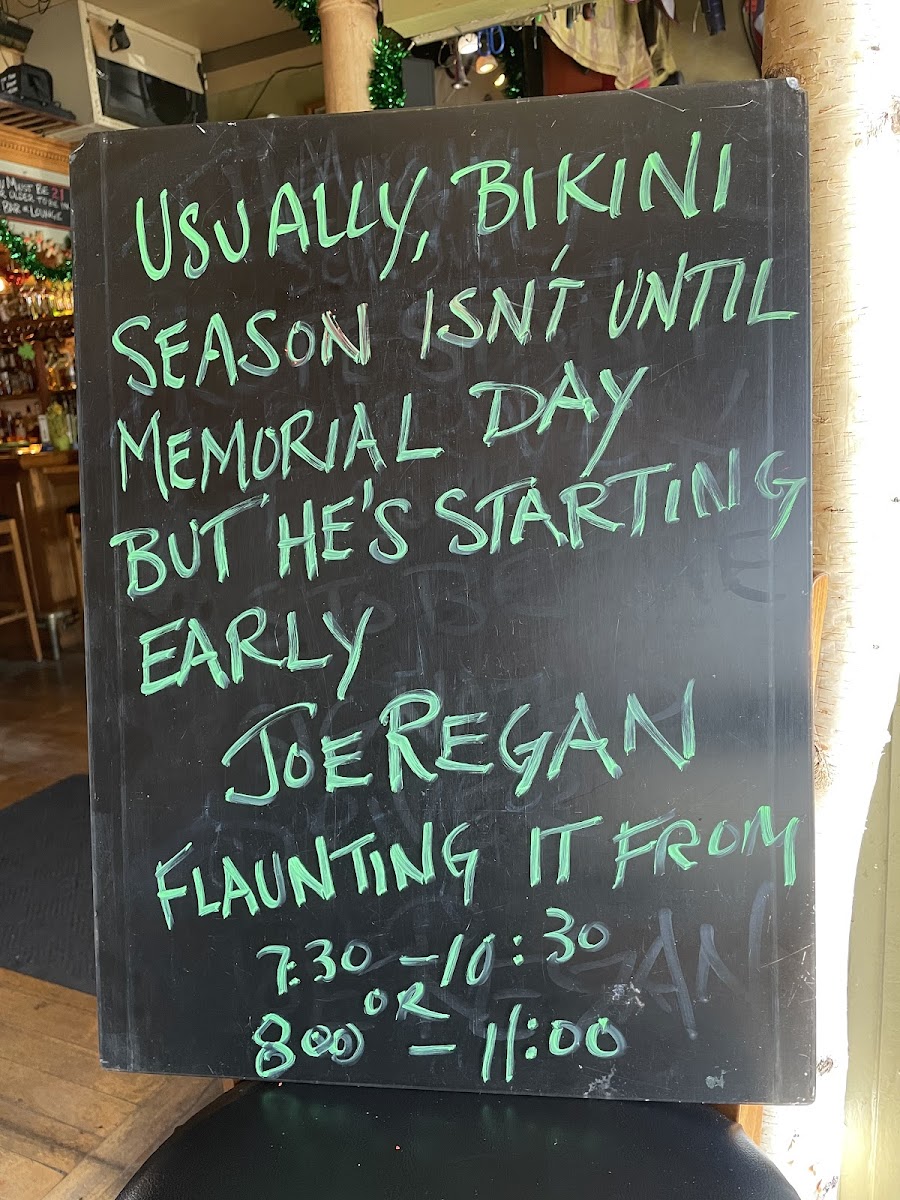 U MUST BE 21
OR OLDER TO BE IN
BAR + LOUNGE
USUALLY, BIKINI
SEASON ISN'T UNTIL
MEMORIAL DAY
BUT HE'S STARTING
EARLY
JOE REGAN
FLAUNTING IT FROM
7:30 - 10:30
OR
8:00 - 11:00